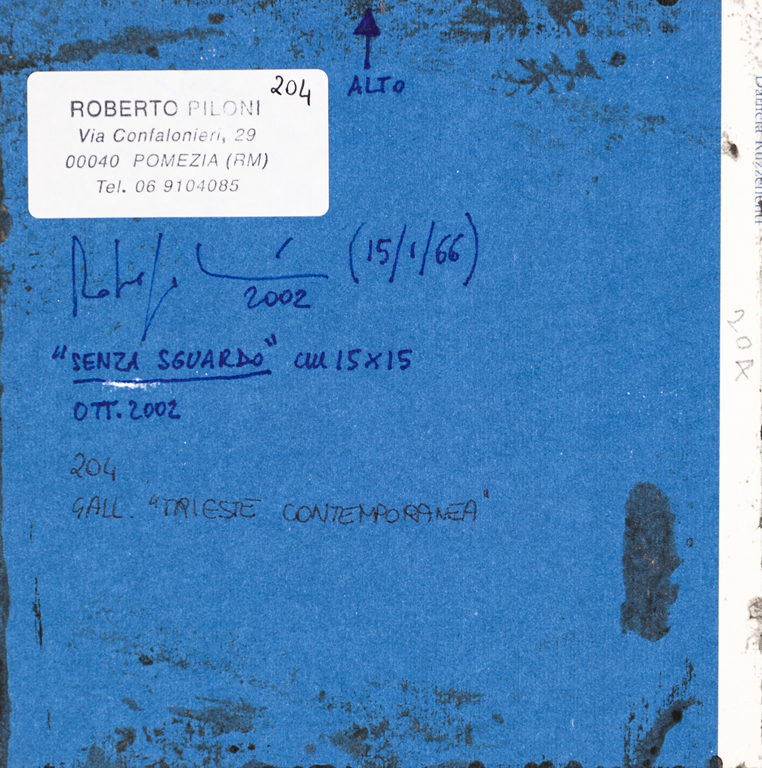 ALTO
204
ROBERTO PILONI
Via Confalonieri, 29
00040 POMEZIA (RM)
Tel. 06 9104085
(15/1/66)
2002
"SENZA SGUARDO" cm 15x15
OTT. 2002
204
GALL. "TRIESTE CONTEMPORANEA"
204